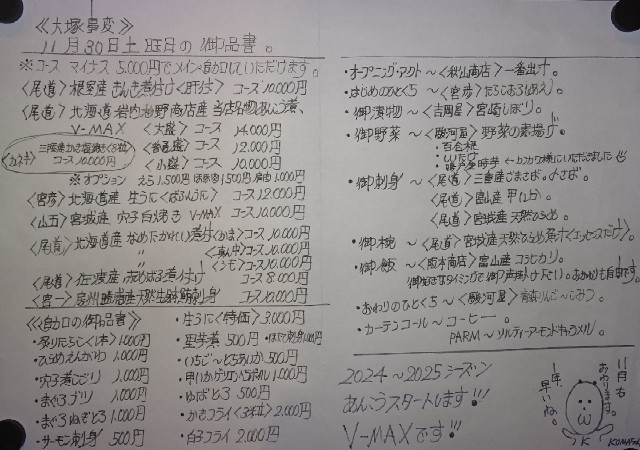 《大塚事変》
11月30日土曜日の御品書。
※コース マイナス 5,000円でメインを自力にしていただけます。
〈尾道〉根室産 きんき煮付け〈肝付〉 コース10,000円
〈尾道〉北海道 岩内 商店産 当店名物あんこう煮、
V-MAX 〈大盛〉コース 14,000円
〈普通盛〉コース 12,000円
〈小盛〉コース 10,000円
コース 10,000円
※オプション えら1,500円
〈宮彦〉北海道産 生うに コース12,000円
〈山五〉宮城産 穴子白焼き V-MAX コース10,000円
〈尾道〉北海道産 なめたかれい煮付〈かま〉コース10,000円
〃 〈真中〉コース10,000円
〃 〈しも〉コース10,000円
〈尾道〉佐渡産 赤めばる煮付け コース8,000円
〈宮一〉房州勝浦産天然生鮪刺身 コース10,000円
《自力の御品書》
・炙りたらこ〈1本〉1,000円
・ひらめえんがわ 1,000円
・穴子煮こごり 1,000円
・まぐろブツ 1,000円
・まぐろねぎとろ 1,000円
・サーモン刺身 500円
・生うに〈特価〉3,000円
・里芋煮 500円
・いちご〜とちあいか 500円
・ハイボール 1,000円
・ゆばとろ 500円
・かきフライ〈3粒〉2,000円
・白子フライ 2,000円
・オープニング・アクト〜〈秋山商店〉一番出汁。
・はじめのひとくち〜〈宮彦〉
・御漬物〜〈吉岡屋〉宮崎しぼり。
・御野菜〜〈駿河屋〉野菜の素揚げ。
・百合根
・しいたけ
・御刺身〜〈尾道〉三重産ごまさば。
〈尾道〉富山産 甲いか。
〈尾道〉宮城産 天然ひらめ。
・御椀〜〈尾道〉宮城産天然ひらめ〈エッセンスだけ〉。
・御飯〜〈阪本商店〉富山産コシヒカリ。
御好きなタイミングで御声掛け下さい。おかわりも自由です。
・おわりのひとくち〜〈駿河屋〉青森りんご〜こみつ。
・カーテンコール〜コーヒー。
PARM〜ソルティーアーモンドキャラメル。
2024〜2025シーズン
あんこうスタートします!!!
V-MAXです!!!
11月も
おわります。
1年、
早いね。
K K